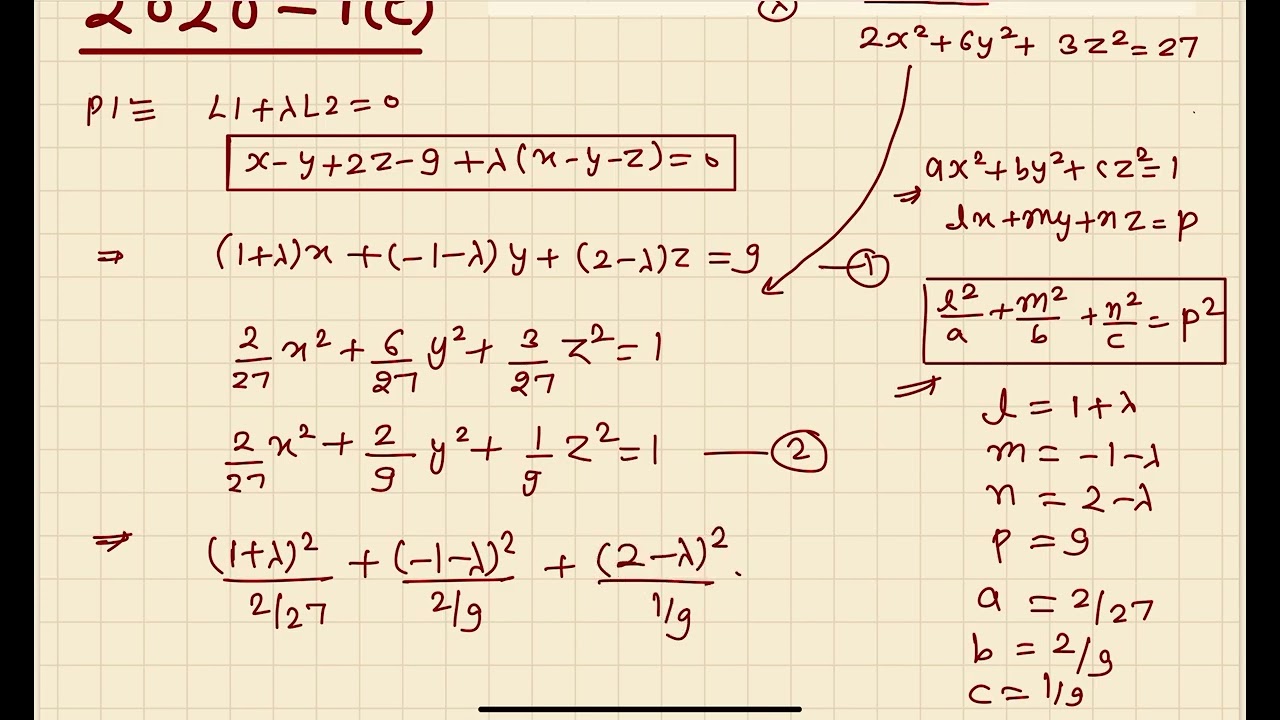 2020 - 1(c)
2x² + 6y² + 3z² = 27
P1 ≡ L1 + λL2 = 0
x - y + 2z - 9 + λ(x - y - z) = 0
⇒ (1+λ)x + (-1-λ)y + (2-λ)z = 9 —①
2/27 x² + 6/27 y² + 3/27 z² = 1
2/27 x² + 2/9 y² + 1/9 z² = 1 —②
⇒ (1+λ)²/(2/27) + (-1-λ)²/(2/9) + (2-λ)²/(1/9) .
⇒ ax² + by² + cz² = 1
lx + my + nz = p
l²/a + m²/b + n²/c = p²
⇒ l = 1+λ
m = -1-λ
n = 2-λ
p = 9
a = 2/27
b = 2/9
c = 1/9